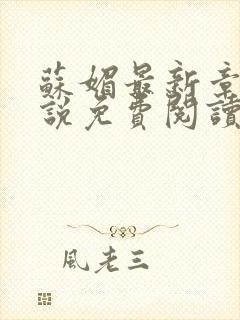 蘇媚最新章
說免費閱讀
風老三